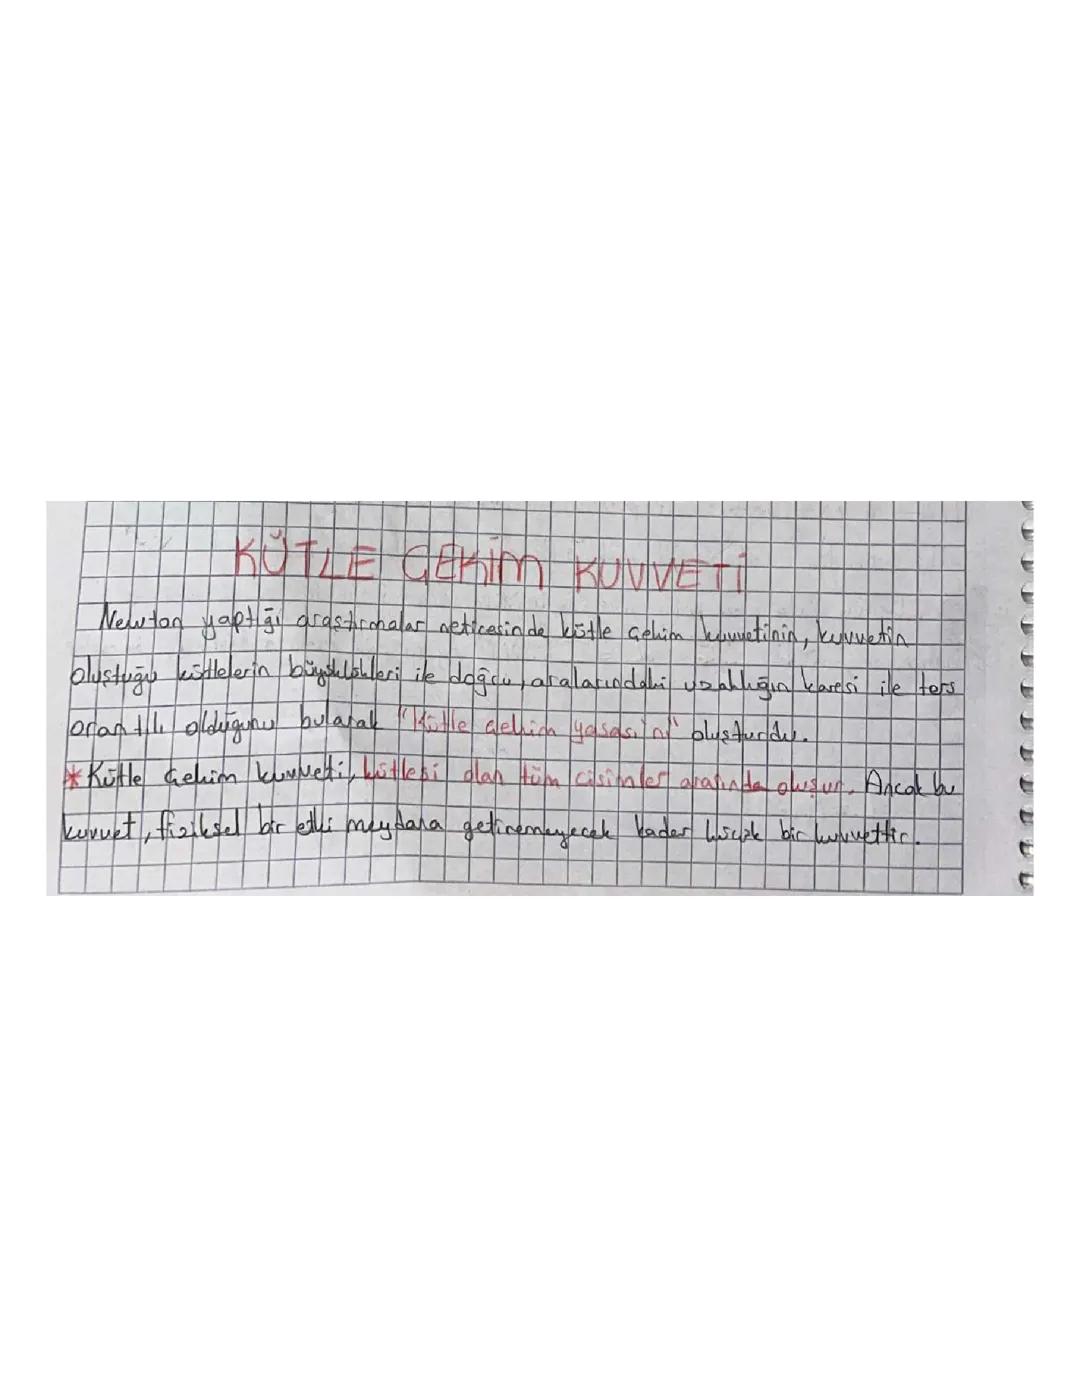 KÜTLE ÇEKİM KUVVETİ
Newton yaptığı araştırmalar neticesinde kütle çekim kuvvetinin, kuvvetin
oluştuğu kütlelerin büyüklükleri ile doğru, aralarındaki uzaklığın karesi ile ters
orantılı olduğunu bularak "Kütle çekim yasası nı" oluşturdu.
* Kütle çekim kuvveti, kütlesi olan tüm cisimler arasında oluşur. Ancak bu
kuvvet, fiziksel bir etki meydana getiremeyecek kadar küçük bir kuvvettir.